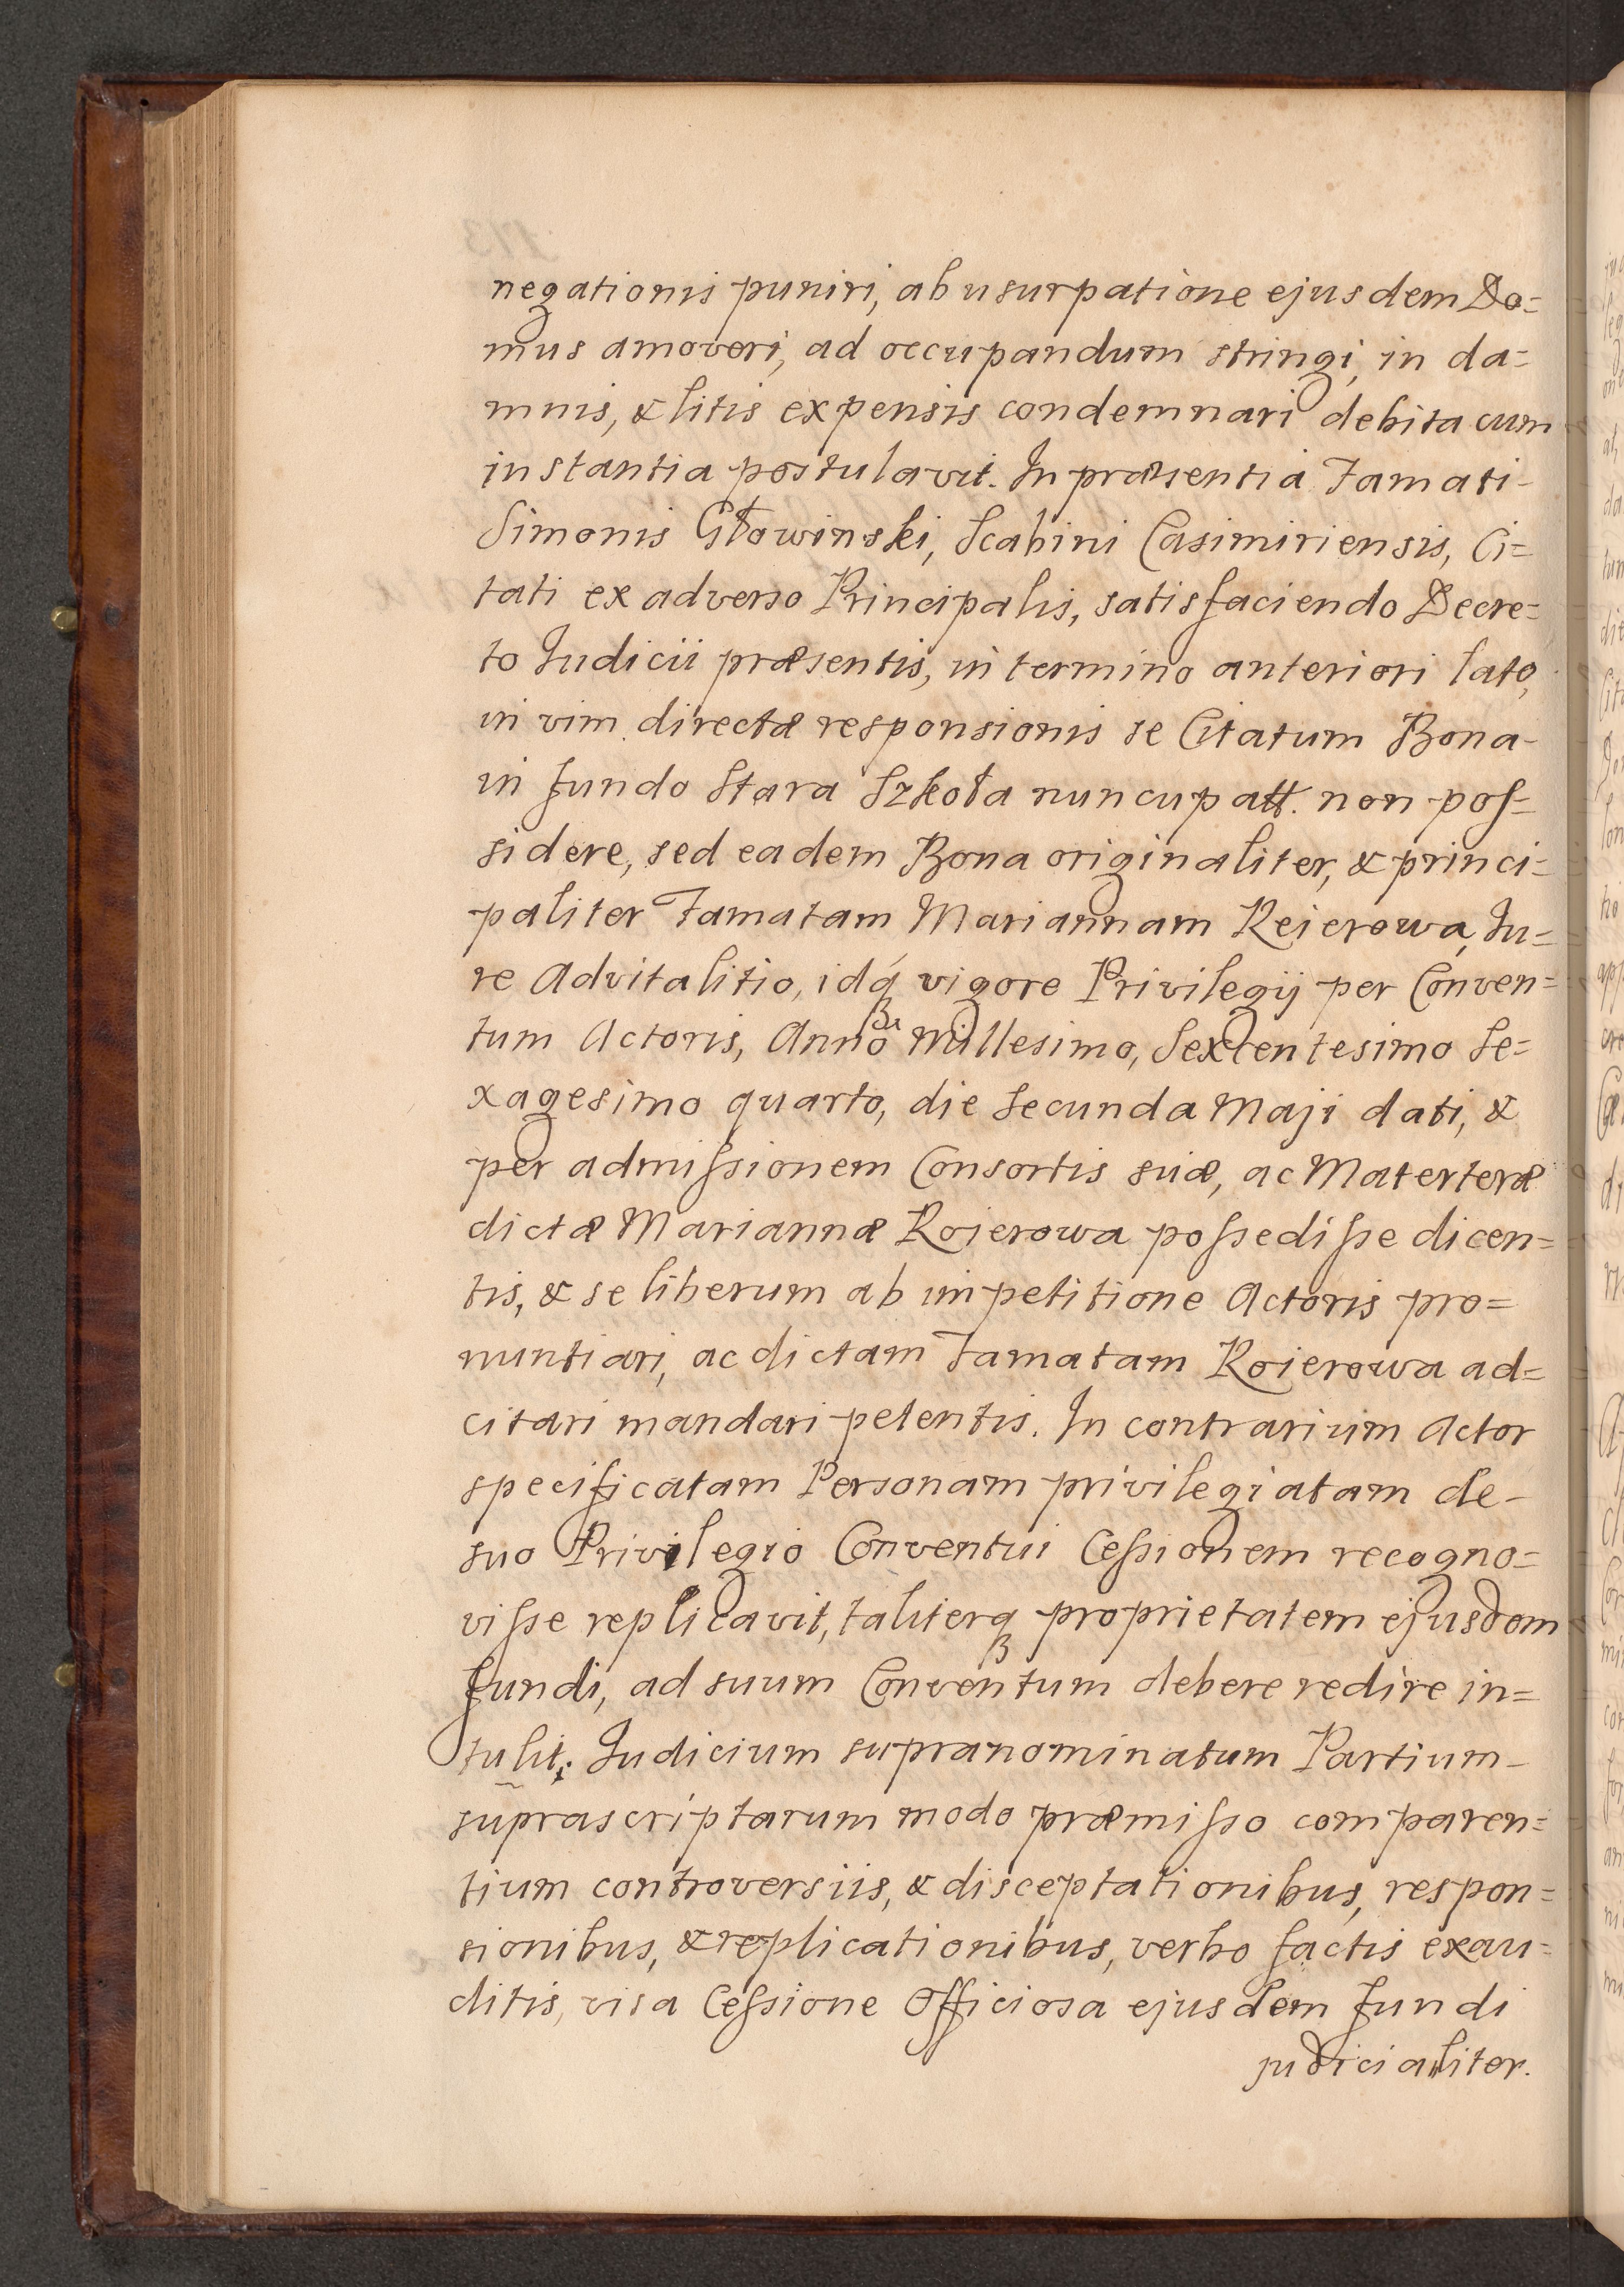 negationis puniri, ab usurpatione ejusdem Do=
mus amoveri, ad occupandum stringi, in da=
mnis, & litis expensis condemnari debita cum
instantia postulavit. In præsentia Famati-
Simonis Głowinski, Scabini Casimiriensis, Ci=
tati ex adverso Principalis, satisfaciendo Decre=
to Iudicii præsentis, in termino anteriori lato,
in vim directæ responsionis se Citatum Bona-
in fundo Stara Szkoła nuncupatt. non pos=
sidere, sed eadem Bona originaliter, & princi=
paliter Famatam Mariannam Reierowa, Iu=
re Advitalitio, idq́ vigore Privilegij per Conven=
tum Actoris, Anno Millesimo, Sexcentesimo Se=
xagesimo quarto, die Secunda Maji dati, &
per admissionem Consortis suæ, ac Materteræ
dictæ Mariannæ Roierowa possedisse dicen=
tis, & se liberum ab impetitione Actoris pro=
nuntiari, ac dictam Famatam Roierowa ad=
citari mandari petentis. In contrarium Actor
specificatam Personam privilegiatam de-
suo Privilegio Conventui Cessionem recogno=
visse replicavit, taliterq proprietatem ejusdem
Fundi, ad suum Conventum debere redire in=
tulit; Iudicium supranominatum Partium-
suprascriptarum modo præmisso comparen=
tium controversiis, & disceptationibus, respon=
sionibus, & replicationibus, verbo factis exau=
ditis, visa Cessione Officiosa ejusdem Fundi
judicialiter.